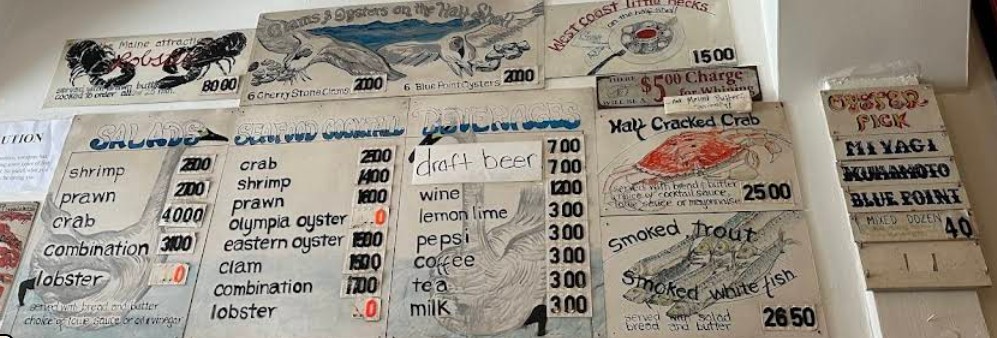 Maine attraction
Lobster
served with drawn butter
cooked to order
80 00
Clams & Oysters on the Half Shell
6 Cherry Stone Clams 20 00
6 Blue Point Oysters 20 00
West coast little necks
on the half shell
15 00
THERE WILL BE A $5 00 Charge for Whining
UTION
SALADS
shrimp
prawn
crab 40 00
combination
lobster .0
served with bread and butter
choice of louie sauce or oil vinegar
SEAFOOD COCKTAIL
crab
shrimp 14 00
prawn
olympia oyster .0
eastern oyster
clam
combination
lobster .0
BEVERAGES
draft beer 7 00
7 00
wine 12 00
lemon lime 3 00
pepsi 3 00
coffee 3 00
tea 3 00
milk 3 00
Half Cracked Crab
served with bread & butter
choice of cocktail sauce,
louie sauce or mayonnaise
25 00
Smoked Trout
Smoked white fish
served with salad
bread and butter
26 50
OYSTER
PICK
MIYAGI
KUMAMOTO
BLUE POINT
MIXED DOZEN 40